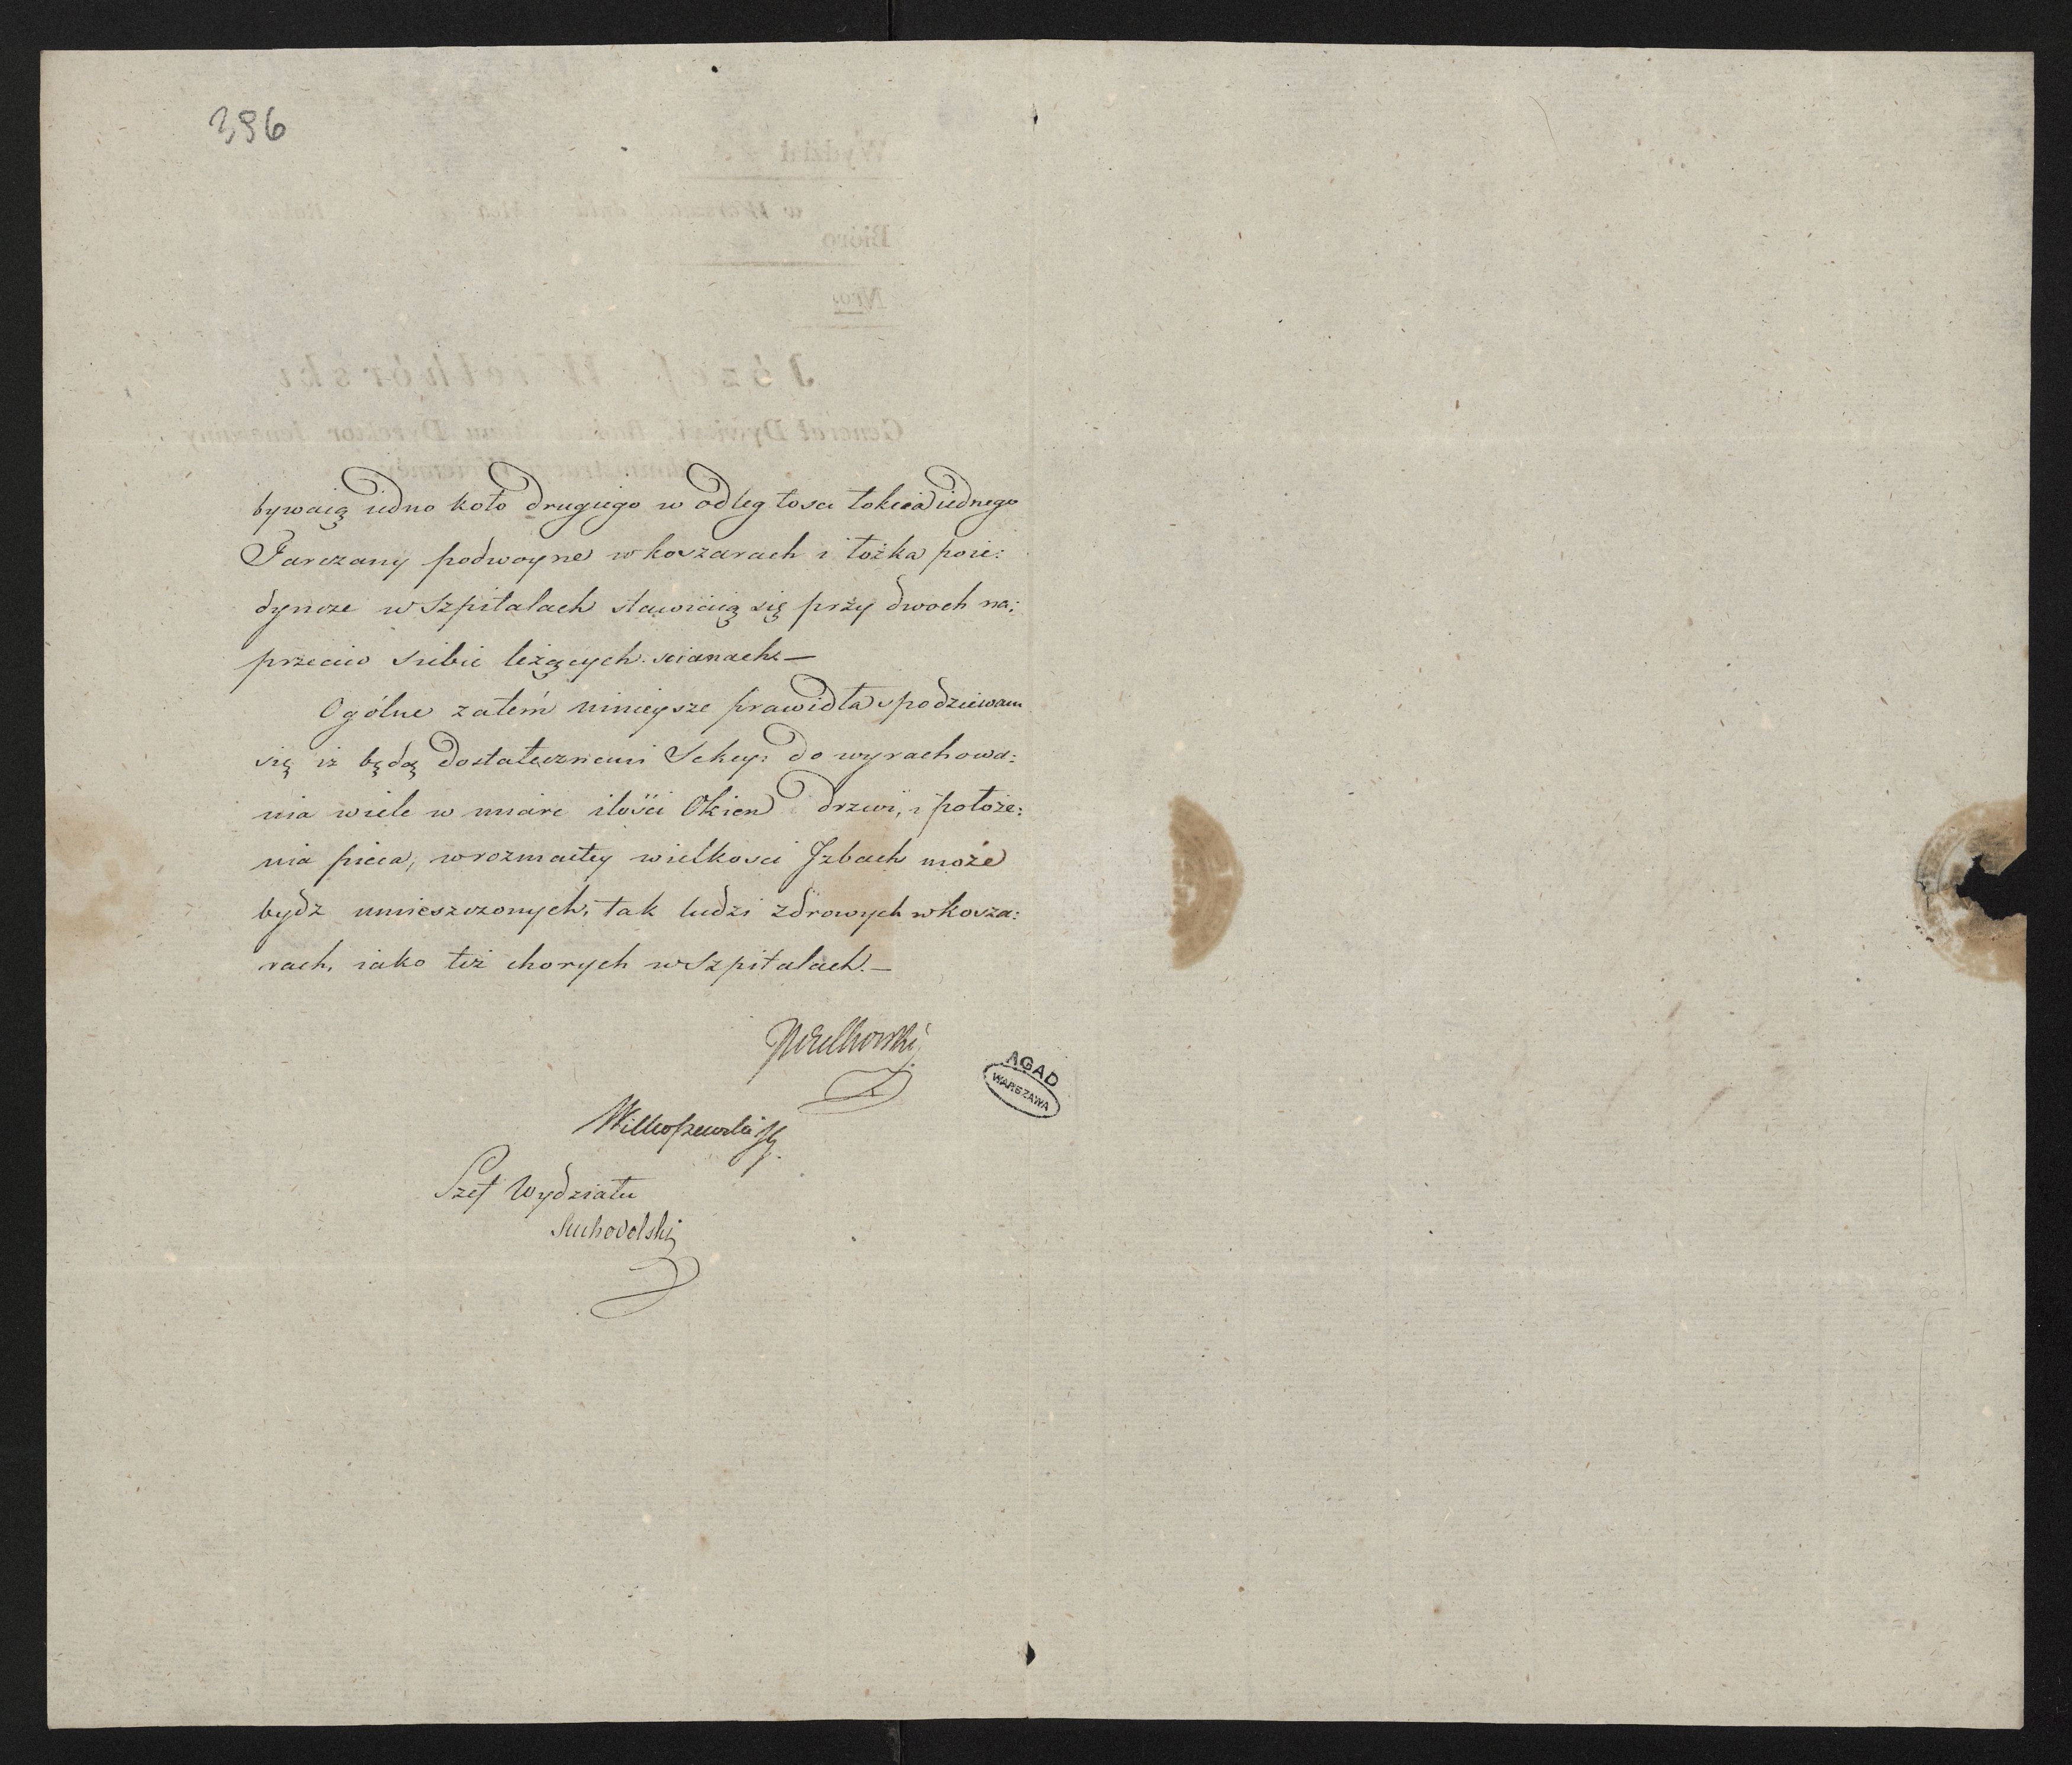 396
bywaią iedno koło drugiego w odległosci łokcia iednego
Tarczany podwoyne w koszarach i łożka poie:
dyncze w Szpitalach stawiaią się przy dwoch na:
przeciw siebie leżących scianach.—
Ogólne zatém ninieysze prawidła spodziewam
się iż będą dostatecznemi Sekcy: do wyrachowa:
nia wiele w miarę ilości Okien drzwi, i położe:
nia pieca, w rozmaitey wielkosci Jzbach może
bydź umieszczonych, tak ludzi zdrowych w kosza:
rach, iako też chorych w Szpitalach.—
Wielhorski
AGAD
WARSZAWA
Szef Wydziału
Suchodolski